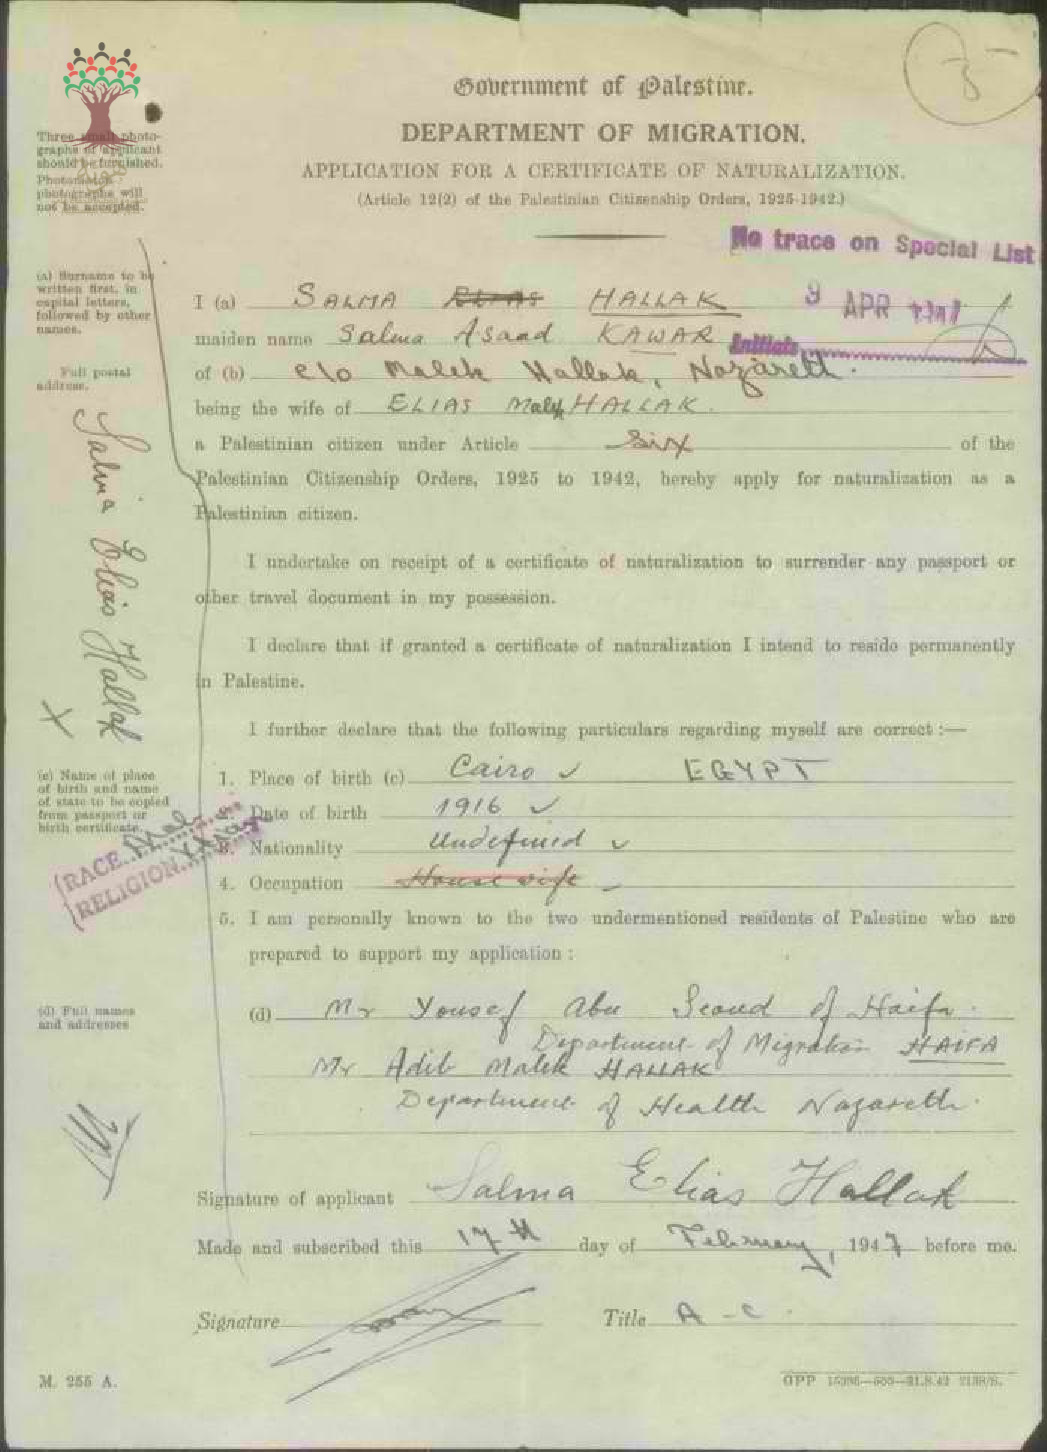 Government of Palestine.
DEPARTMENT OF MIGRATION.
APPLICATION FOR A CERTIFICATE OF NATURALIZATION.
(Article 12(2) of the Palestinian Citizenship Orders, 1925-1942.)
Three small photo-
graphs of applicant
should be furnished.
Photomaton
photographs will
not be accepted.
No trace on Special List
9 APR 1947
Initials
(a) Surname to be
written first, in
capital letters,
followed by other
names.
I (a) SALMA ELIAS HALLAK
maiden name Salma Asaad KAWAR
Full postal
address.
of (b) c/o Malek Hallak, Nazareth.
being the wife of ELIAS Malek HALLAK.
a Palestinian citizen under Article six of the
Palestinian Citizenship Orders, 1925 to 1942, hereby apply for naturalization as a
Palestinian citizen.
Salma Elias Hallak
I undertake on receipt of a certificate of naturalization to surrender any passport or
other travel document in my possession.
I declare that if granted a certificate of naturalization I intend to reside permanently
in Palestine.
X
I further declare that the following particulars regarding myself are correct :—
(c) Name of place
of birth and name
of state to be copied
from passport or
birth certificate.
1. Place of birth (c) Cairo ✓ EGYPT
2. Date of birth 1916 ✓
3. Nationality Undefined ✓
4. Occupation House wife
RACE
RELIGION
5. I am personally known to the two undermentioned residents of Palestine who are
prepared to support my application :
(d) Full names
and addresses
(d) Mr Yousef Abu Seoud of Haifa.
Department of Migration HAIFA
Mr Adib Malek HALLAK
Department of Health Nazareth.
Signature of applicant Salma Elias Hallak
Made and subscribed this 17th day of February, 1947 before me.
Signature Title A-C.
M. 255 A.
GPP 15396—500—21.8.42 2138/S.